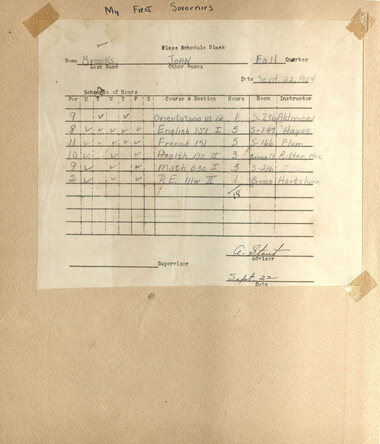 My First
Class Schedule Blank
Name Brooks Joan Fall Quarter
Last Name Other Names
Date Sept. 22, 19
Schedule of Hours
Per M T W T F S Course & Section Hours Room Instructor
9 ✓ ✓ Orientation 111 1 S-236
8 ✓ ✓ ✓ ✓ ✓ English 151 I 5 S-147 Hayes
11 ✓ ✓ ✓ ✓ ✓ French 151 5 S-166 Flum
10 ✓ ✓ ✓ Health 130 III 3 Ritter,
9 ✓ ✓ ✓ Math 030 I 3 S-236
2 ✓ ✓ P.E. 111w III 1 Hartshorn
18
A. Stout
Supervisor Advisor
Sept. 22
Date